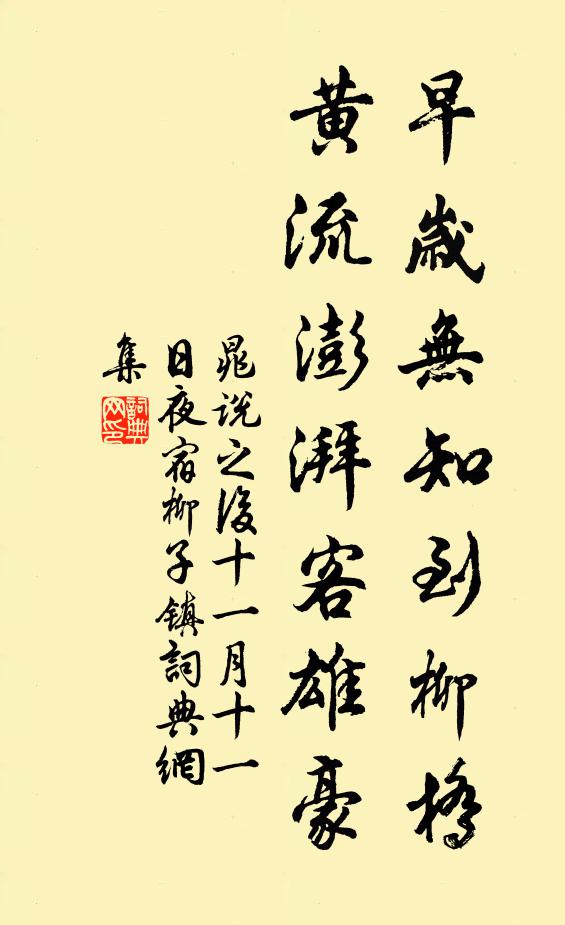 早歲無知到柳橋
黃流澎湃客雄豪
晁說之後十一月十一
日夜宿柳子鎮詞典網
集
詞典
网印